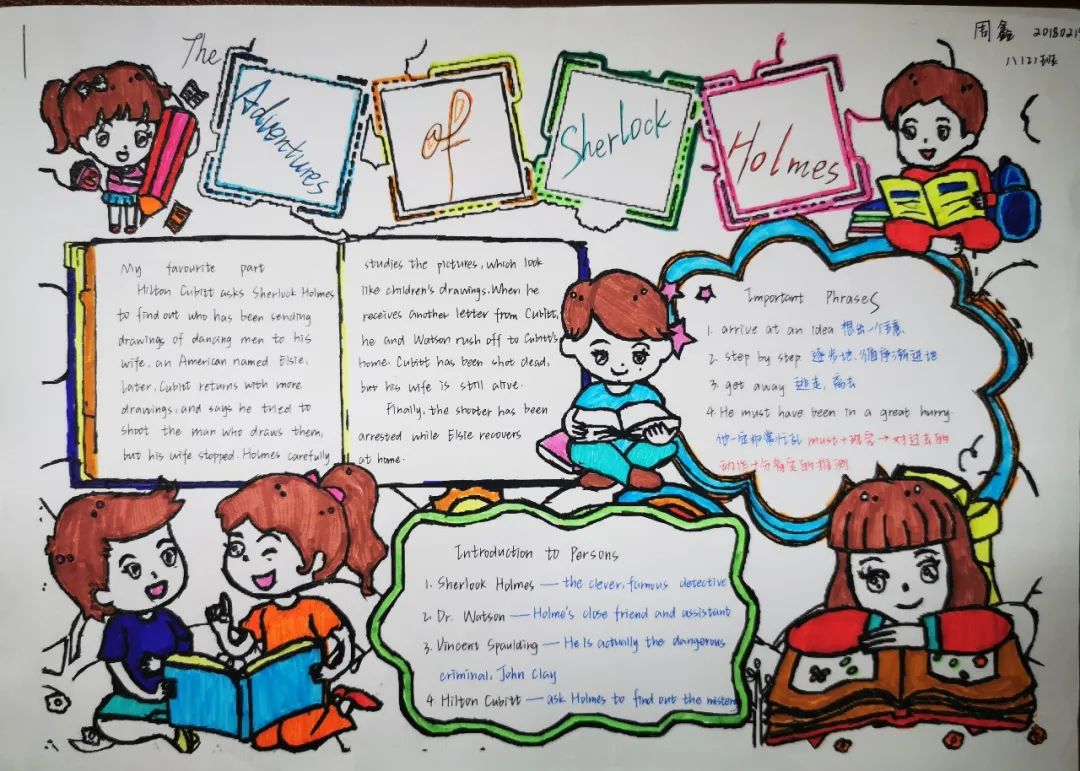 周鑫 20180219
八121班
The Adventures of Sherlock Holmes
My favourite part
Hilton Cubitt asks Sherlook Holmes
to find out who has been sending
drawings of dancing men to his
wife, an American named Elsie,
Later, Cubitt returns with more
drawings, and says he tried to
shoot the man who draws them,
but his wife stopped. Holmes carefully
studies the pictures, which look
like children's drawings. When he
receives another letter from Cubitt,
he and Watson rush off to Cubitt's
home. Cubitt has been shot dead,
but his wife is still alive.
Finally, the shooter has been
arrested while Elsie recovers
at home.
Important Phrases
1. arrive at an idea 想出一个主意
2. step by step 逐步地、循序渐进地
3. get away 逃走、离去
4. He must have been in a great hurry.
他一定非常忙乱 must+现完→对过去的
动作十分肯定的推测
Introduction to Persons
1. Sherlook Holmes — the clever, famous detective
2. Dr. Watson — Holme's close friend and assistant
3. Vincent Spaulding — He is actually the dangerous
criminal, John Clay
4. Hilton Cubitt — ask Holmes to find out the mistery